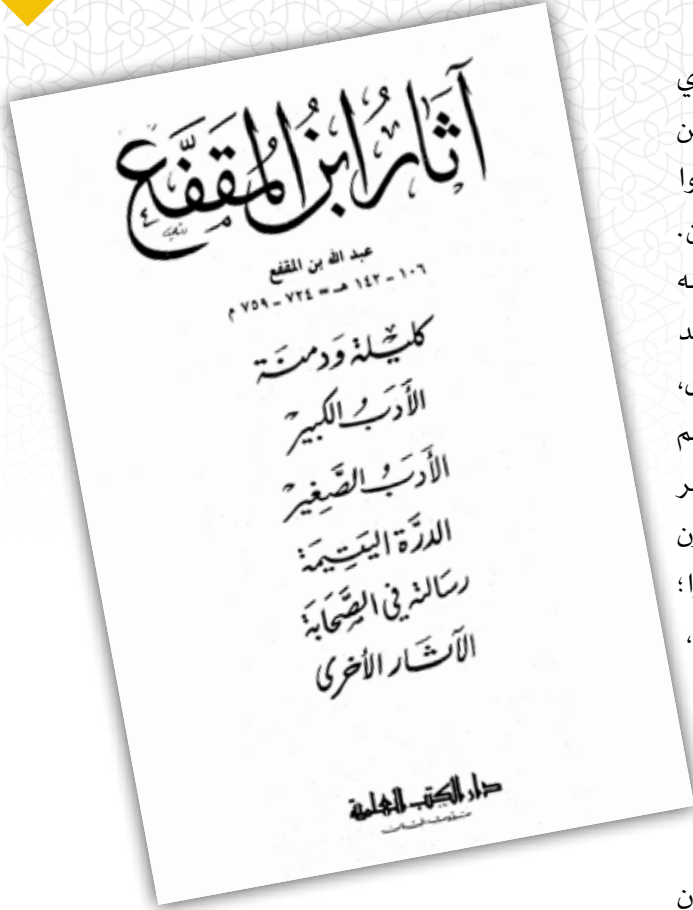 آثَارُ ابْنِ الْمُقَفَّعِ
عبد الله بن المقفع
١٠٦ - ١٤٢ هـ = ٧٢٤ - ٧٥٩ م
كليلة ودمنة
الأدب الكبير
الأدب الصَّغير
الدرَّة اليتيمة
رسالة في الصَّحابة
الآثار الأخرى
دار الكتب العلمية